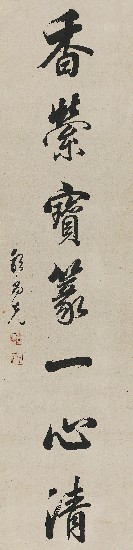 香縈寶篆一心清